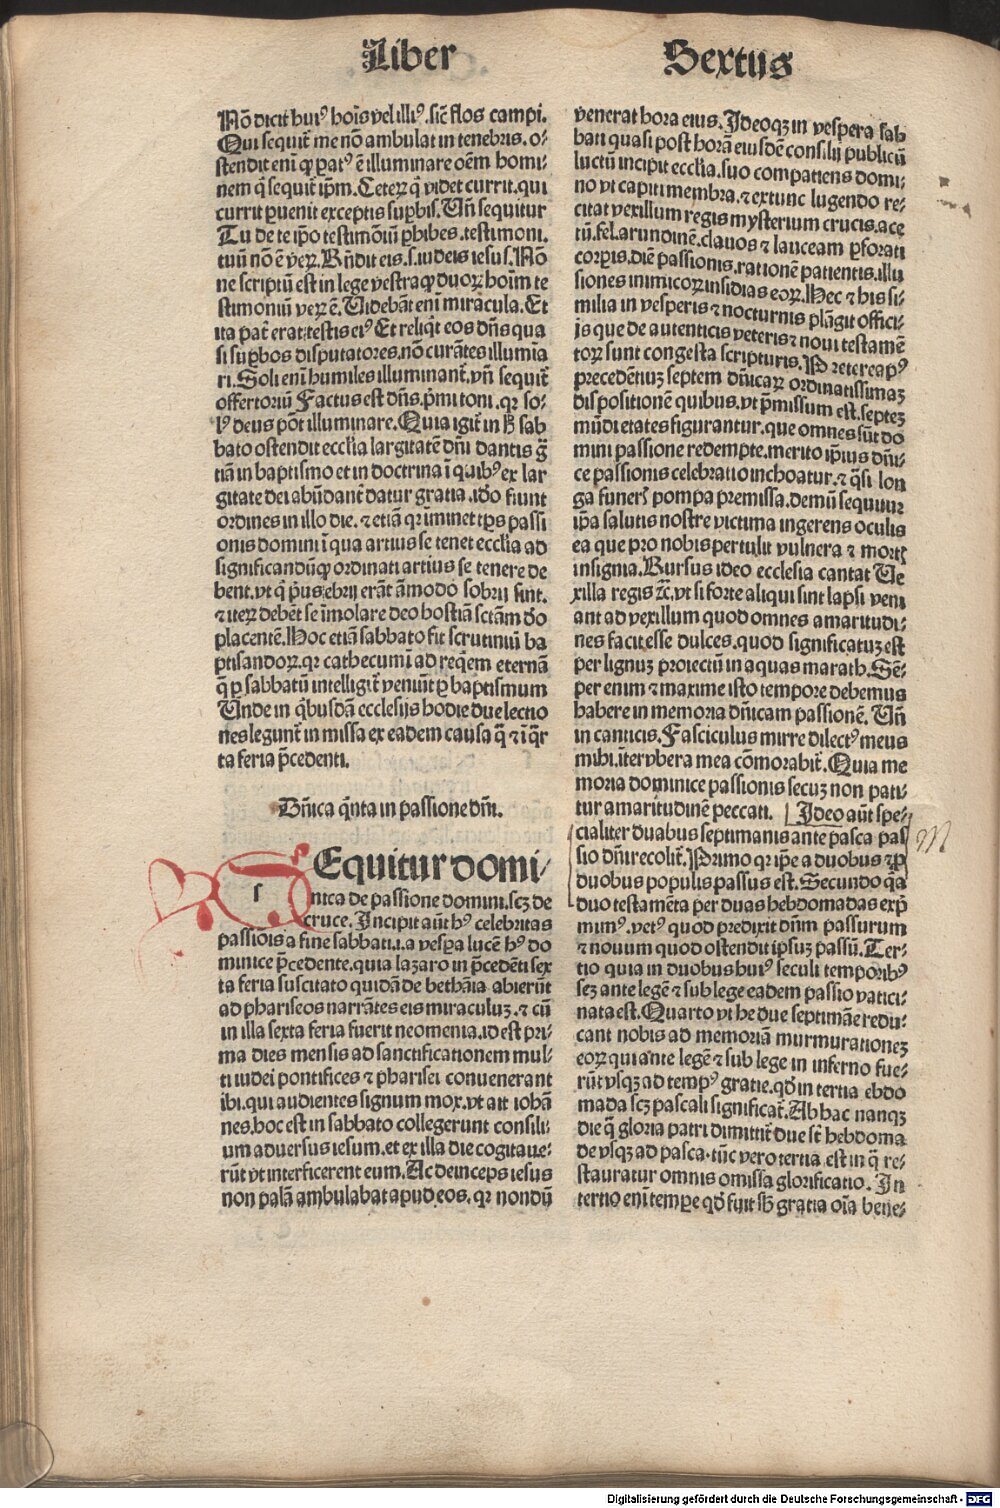 Liber Sextus
Nō dicit huiꝰ hoīs vel illiꝰ. sic̄ flos campi.
Qui sequit̄ me nō ambulat in tenebris. o-
stendit eni ꝙ patꝰ ē illuminare oēm homi-
nem q̄ sequit̄ ip̄m. Ceteꝝ q̄ videt currit. qui
currit ꝑuenit exceptis suꝑbis. Vn̄ sequitur
Tu de te ip̄o testimōiū ꝑhibes. testimoni-
tuū nō ē veꝝ. Rn̄dit eis. s. iudeis iesus. Nō
ne scriptū est in lege vestra ꝙ duoꝝ hoīm te
stimoniū veꝝ ē. Videbāt eni miracula. Et
ita pat̄ erat testis eiꝰ Et reliq̄t eos dn̄s qua
si suꝑbos disputatores. nō curātes illumīa
ri. Soli eni humiles illuminant̄. vn̄ sequit̄
offertoriū Factus est dn̄s. p̄mi toni. qr so-
lꝰ deus pōt illuminare. Quia igit̄ in hͦ sab
bato ostendit ecclīa largitatē dn̄i dantis gr̄
tiā in baptismo et in doctrina ī quibꝰ ex lar
gitate dei abūdant̄ datur gratia. idō fiunt
ordines in illo die. ⁊ etiā qr īminet tp̄s passi
onis domini ī qua artius se tenet ecclīa ad
significandū ꝙ ordinati artius se tenere de
bent. vt q̄ pͥus ebrij erāt āmodo sobrij sint.
⁊ iteꝝ debēt se īmolare deo hostiā sctām dō
placentē. Hoc etiā sabbato fit scrutiniū ba
ptisandoꝝ. qr cathecumī ad req̄em eternā
q̄ ꝑ sabbatū intelligit̄ veniūt ꝑ baptismum
Unde in q̄busdā ecclesijs hodie due lectio
nes legunt̄ in missa ex eadem causa q̄ ⁊ ī q̄r
ta feria p̄cedenti.
Dn̄ica q̄nta in passione dn̄i.
s
Equitur domi-
nica de passione domini. scꝫ de
cruce. Incipit aūt hꝰ celebritas
passiōis a fine sabbati. i. a vesꝑa lucē hꝰ do
minice p̄cedente. quia lazaro in p̄cedēti sex
ta feria suscitato quidā de bethāia abierūt
ad phariseos narrātes eis miraculuꝫ. ⁊ cū
in illa sexta feria fuerit neomenia. id est pri-
ma dies mensis ad sanctificationem mul-
ti iudei pontifices ⁊ pharisei convenerant
ibi. qui audientes signum mox. vt ait iohā
nes. hoc est in sabbato collegerunt consili-
um aduersus iesum. et ex illa die cogitaue-
rūt vt interficerent eum. Ac deinceps iesus
non palā ambulabat apud eos. qr nondū
venerat hora eius. Ideoqꝫ in vespera sab
bati quasi post horā eiusdē consilij publicū
luctū incipit ecclīa. suo compatiens domi-
no vt capiti membra. ⁊ extunc lugendo re-
citat vexillum regis mysterium crucis. ace
tū. fel. arundinē. clauos ⁊ lanceam ꝑforati
corꝑis. diē passionis. rationē patientis. illu
siones inimicoꝝ insidias eoꝝ. Hec ⁊ his si-
milia in vesperis ⁊ nocturnis plāgit offici-
js que de autenticis veteris ⁊ noui testamē
toꝝ sunt congesta scripturis. Preterea pꝰ
precedētiuꝫ septem dn̄icaꝝ ordinatissimaꝫ
dispositionē quibus. vt p̄missum est. septeꝫ
mūdi etates figurantur. que omnes sūt do
mini passione redempte. merito ip̄ius dn̄i-
ce passionis celebratio inchoatur. ⁊ q̄si lon
ga funeris pompa premissa. demū sequitur
ip̄a salutis nostre victima ingerens oculis
ea que pro nobis pertulit vulnera ⁊ mortꝭ
insignia. Rursus ideo ecclesia cantat Ve
xilla regis ⁊c̄. vt si forte aliqui sint lapsi veni
ant ad vexillum quod omnes amaritudi-
nes facit esse dulces. quod significatuꝫ est
per lignuꝫ proiectū in aquas marath. Sē-
per enim ⁊ maxime isto tempore debemus
habere in memoria dn̄icam passionē. Vn̄
in canticis. Fasciculus mirre dilectꝰ meus
mihi. inter vbera mea cōmorabit̄. Quia me
moria dominice passionis secuꝫ non pati-
tur amaritudinē peccati. Ideo aūt spe-
cialiter duabus septimanis ante pasca pas
sio dn̄i recolit̄. Primo qr ip̄e a duobus ⁊ ꝓ
duobus populis passus est. Secundo qa
duo testamēta per duas hebdomadas exp̄
mimꝰ. vetꝰ quod predixit dn̄m passurum
⁊ nouum quod ostendit ipsuꝫ passū. Ter-
tio quia in duobus huiꝰ seculi temporibꝰ
scꝫ ante legē ⁊ sub lege eadem passio vatici-
nata est. Quarto vt he due septimāe redu-
cant nobis ad memoriā murmurationeꝫ
eoꝝ qui ante legē ⁊ sub lege in inferno fue-
rūt vsqꝫ ad tempꝰ gratie. qd̄ in tertia ebdo
mada scꝫ pascali significat̄. Ab hac nanqꝫ
die q̄ gloria patri dimittit̄ due st̄ hebdoma
de vsqꝫ ad pasca. tūc vero tertia est in q̄ re-
stauratur omnis omissa glorificatio. In
tertio eni tempꝛe qd̄ fuit sb̄ gratia oīa bene-
Digitalisierung gefördert durch die Deutsche Forschungsgemeinschaft - DFG